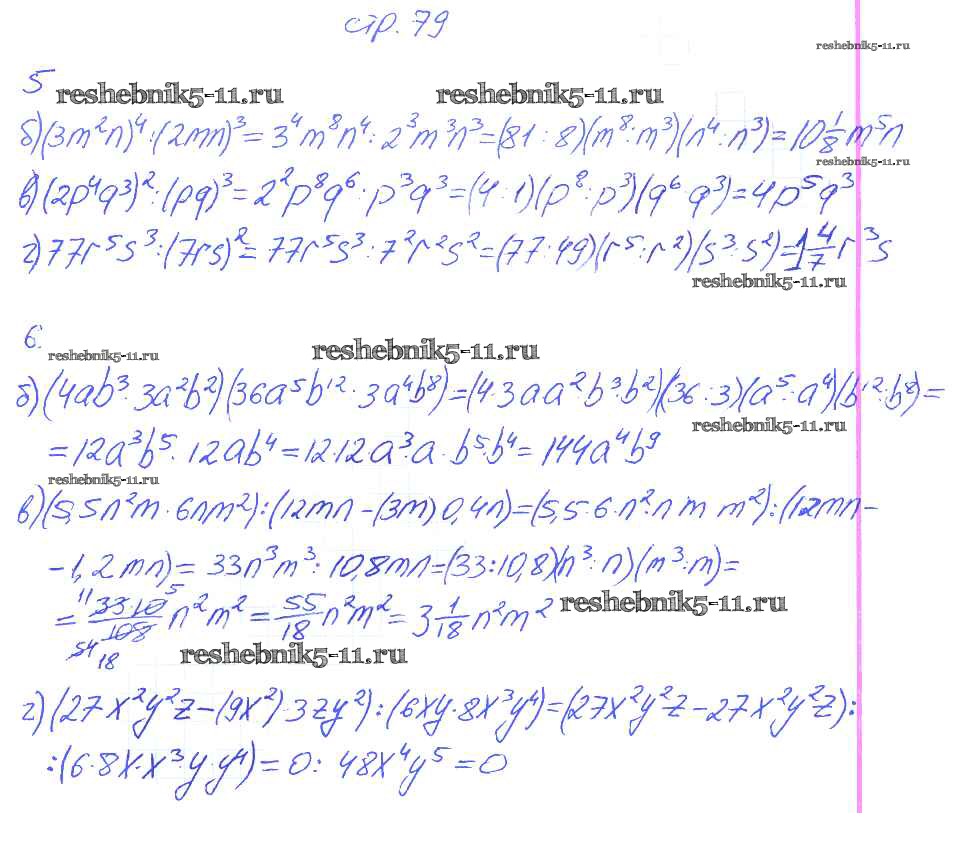 стр. 79
reshebnik5-11.ru
5
reshebnik5-11.ru reshebnik5-11.ru
б) (3m²n)⁴ : (2mn)³ = 3⁴m⁸n⁴ : 2³m³n³ = (81 : 8)(m⁸ : m³)(n⁴ : n³) = 10 1/8 m⁵n
reshebnik5-11.ru
в) (2p⁴q³)² : (pq)³ = 2²p⁸q⁶ : p³q³ = (4 : 1)(p⁸ : p³)(q⁶ : q³) = 4p⁵q³
г) 77r⁵s³ : (7rs)² = 77r⁵s³ : 7²r²s² = (77 : 49)(r⁵ : r²)(s³ : s²) = 1 4/7 r³s
reshebnik5-11.ru
6.
reshebnik5-11.ru reshebnik5-11.ru
б) (4ab³ · 3a²b²)(36a⁵b¹² : 3a⁴b⁸) = (4·3aa²·b³·b²)(36 : 3)(a⁵ : a⁴)(b¹² : b⁸) =
reshebnik5-11.ru
= 12a³b⁵ · 12ab⁴ = 12·12a³·a · b⁵·b⁴ = 144a⁴b⁹
reshebnik5-11.ru
в) (5,5n²m · 6nm²) : (12mn – (3m) 0,4n) = (5,5·6·n²·n m m²) : (12mn –
– 1,2mn) = 33n³m³ : 10,8mn = (33 : 10,8)(n³ : n)(m³ : m) =
= 11 33·10 5 / 54 108 18 n²m² = 55/18 n²m² = 3 1/18 n²m²
reshebnik5-11.ru
reshebnik5-11.ru
г) (27x²y²z – (9x²)·3zy²) : (6xy·8x³y⁴) = (27x²y²z – 27x²y²z) :
: (6·8x·x³·y·y⁴) = 0 : 48x⁴y⁵ = 0